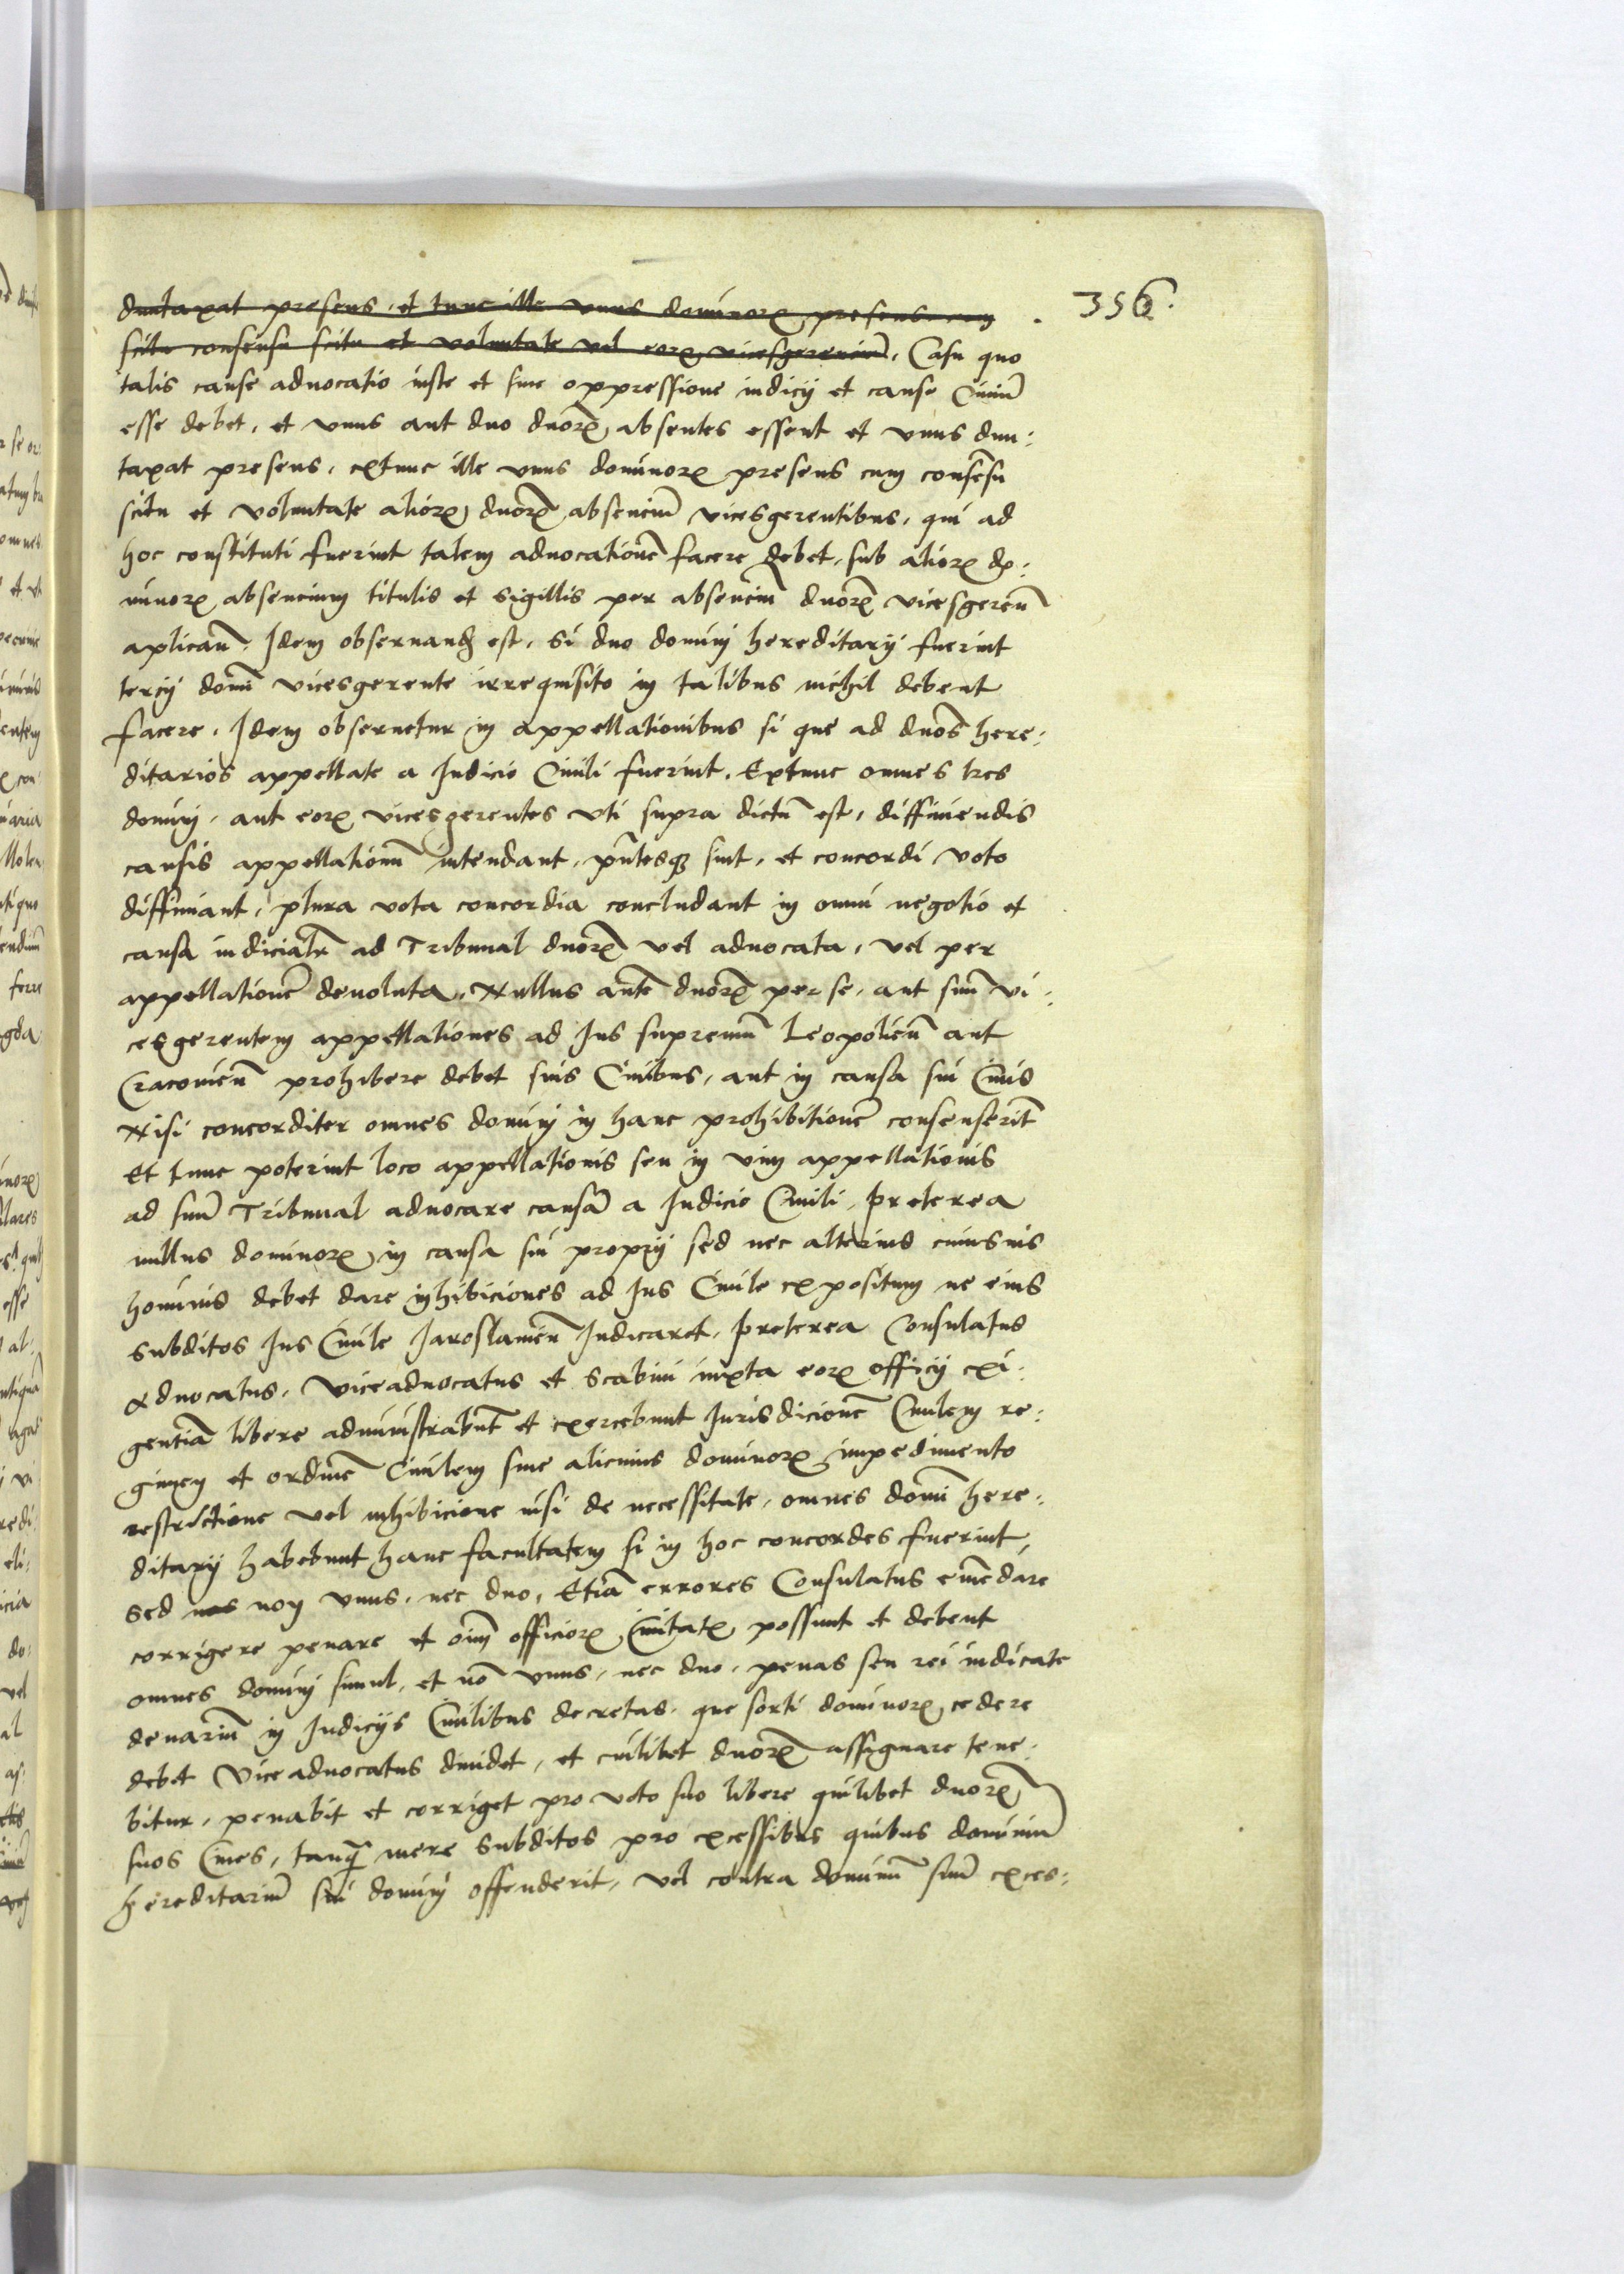 356.
duntaxat presens, et tunc ille unus dominorꝝ presens cum
scitu consensu scitu et voluntate vel eorꝝ vicesgerenciū, Casu quo
talis cause aduocatio iuste et sine oppressione iudicij et cause Ciuiū
esse debet, et vnus aut duo dnorꝝ absentes essent et vnus dun:
taxat presens, extunc ille vnus dominorꝝ presens cum consēsu
scitu et voluntate aliorꝝ dnorꝝ absenciū vicesgerentibus, qui ad
hoc constituti fuerint talem aduocationē facere debet, sub aliorꝝ do:
minorꝝ absencium titulis et sigillis per absenciū dnorꝝ vicesgereñ
aplicañ. Idem obseruandꝫ est, si duo domini hereditarij fuerint
tercij domī vicesgerente irrequisito in talibus nichil debent
facere. Idem obseruetur in appellationibus si que ad dnos here:
ditarios appellate a Iudicio Ciuili fuerint. Extunc omnes tres
domini, aut eorꝝ vicesgerentes vti supra dictū est, diffiniendis
causis appellationū intendant, pñtesqꝫ sint, et concordi voto
diffiniant, plura vota concordia concludant in omni negotio et
causa iudicialr ad Tribunal dnorꝝ vel aduocata, vel per
appellationē deuoluta. Nullus autē dnorꝝ per se, aut suū vi:
cesgerentem appellationes ad Ius supremū Leopolieñ aut
Cracouieñ prohibere debet suis Ciuibus, aut in causa sui Ciuis
Nisi concorditer omnes domini in hanc prohibitionē consenserīt
Et tunc poterint loco appellationis seu in vim appellationis
ad suū Tribunal aduocare causā a Iudicio Ciuili, preterea
nullus dominorꝝ in causa sui proprij sed nec alterius cuiusuis
hominis debet dare inhibiciones ad Ius Ciuile expositum ne eius
subditos Ius Ciuile Jaroslauieñ Iudicaret, preterea Consulatus
Aduocatus, viceaduocatus et scabini iuxta eorꝝ officij exi:
gentiā libere administrabūt et exercebunt Iurisdicionē Ciuilem re:
gimen et ordinē Ciuilem sine alicuius dominorꝝ impedimento
restrictione vel inhibicione nisi de necessitate, omnes domī here:
ditarij habebunt hanc facultatem si in hoc concordes fuerint,
sed nec non vnus, nec duo, Etiā errores Consulatus emēdare
corrigere penare et oīm officiorꝝ Ciuitatꝭ possunt et debent
omnes domini simul, et nō vnus, nec duo, penas seu rei iudicate
denariū in Iudicijs Ciuilibus decretas, que sorti dominorꝝ cedere
debet Viceaduocatus diuidet, et cuilibet dnorꝝ assignare tene:
bitur, penabit et corriget pro voto suo libere quilibet dnorꝝ
suos Ciues, tanqꝫ mere subditos pro excessibus quibus dominiū
hereditariū sui domini offenderit, vel contra dominū suū exces: